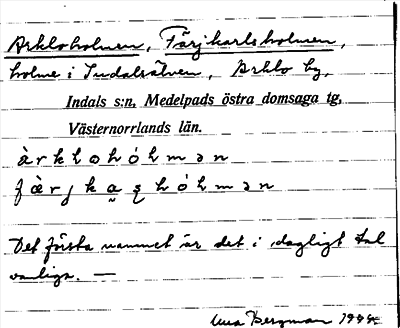 Arkloholmen, Färjkarlsholmen,
holme i Indalsälven, Arklo by,
Indals s:n, Medelpads östra domsaga tg,
Västernorrlands län.
àrklohólmən
Det första namnet är det i dagligt tal
vanliga. —
Bergman